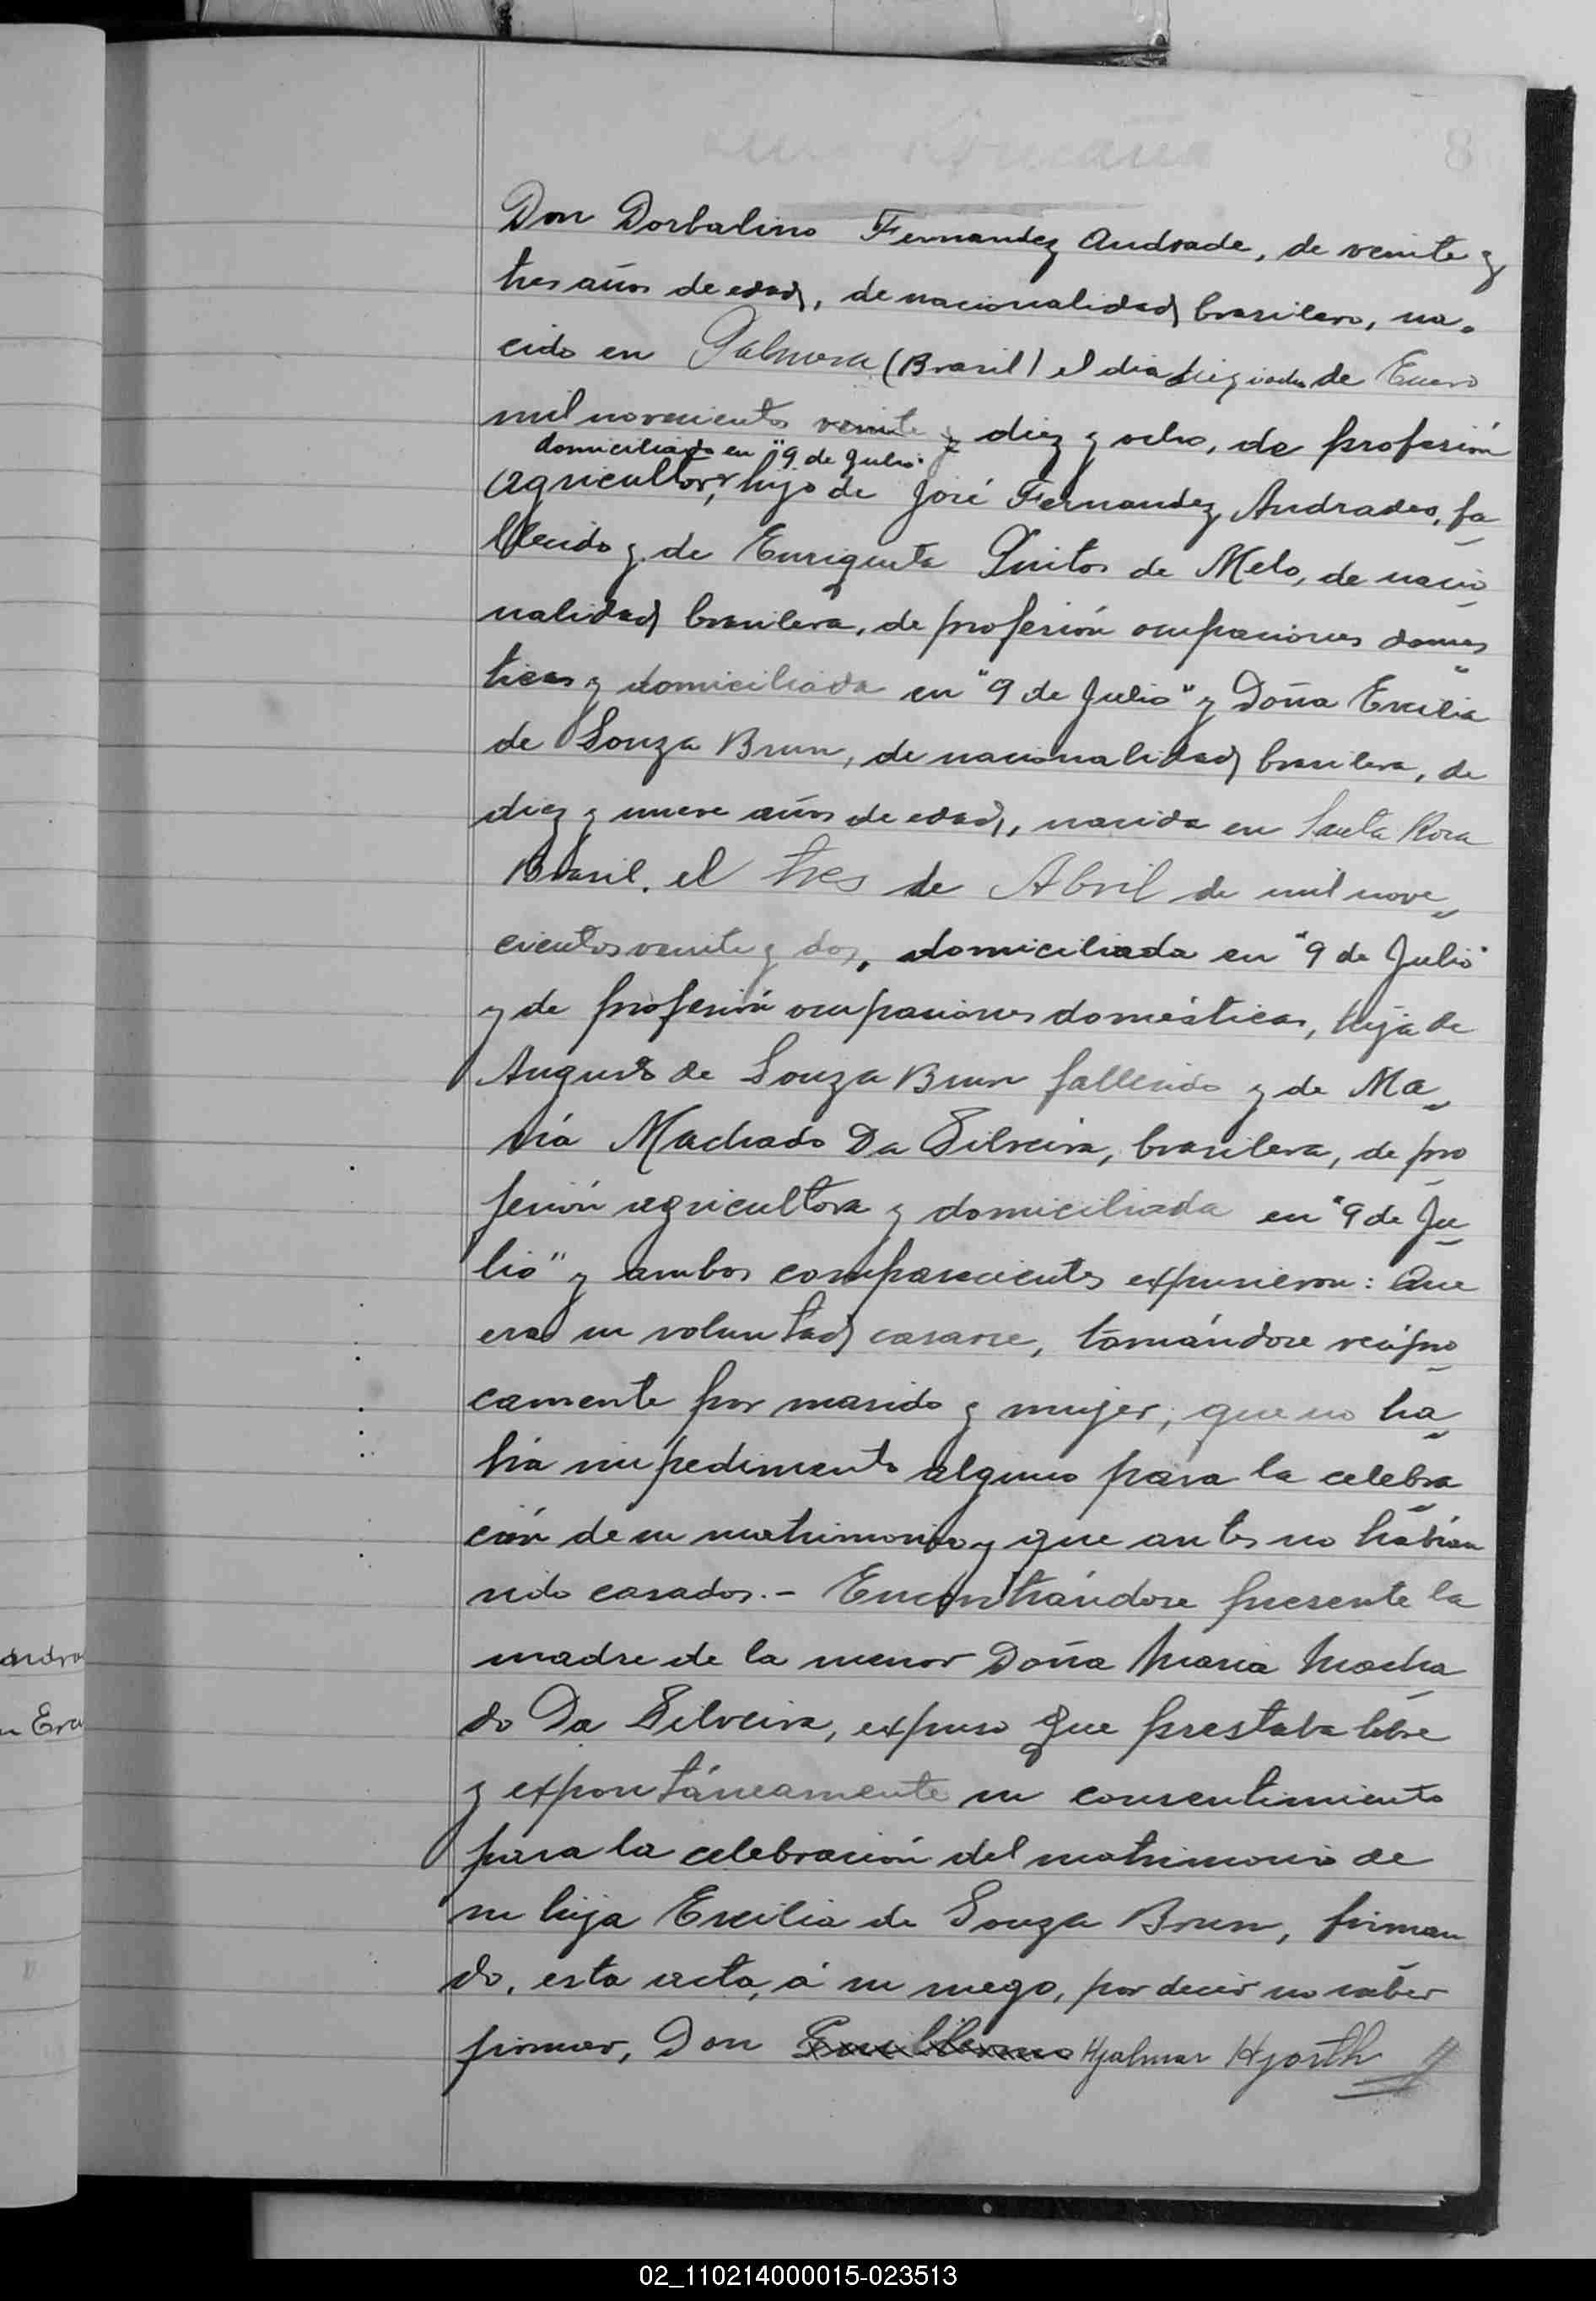 8
Don Dorbalino Fernandez Andrade, de veinte y
tres años de edad, de nacionalidad brasilero, na-
cido en Palmera (Brasil) el dia de Enero
mil novecientos veinte y diez y ocho, de profesión
domiciliado en "9 de Julio"
agricultor, hijo de José Fernandez Andrades, fa-
llecido y de Enriqueta de Melo, de nacio-
nalidad brasilera, de profesión ocupaciones domes-
ticas y domiciliada en "9 de Julio" y Doña Ercilia
de Souza Brun, de nacionalidad brasilera, de
diez y nueve años de edad, nacida en Santa Rosa
Brasil, el tres de Abril de mil nove-
cientos veinte y dos, domiciliada en "9 de Julio"
y de profesión ocupaciones domésticas, hija de
Augusto de Souza Brun fallecido y de Ma-
ria Machado Da Silveira, brasilera, de pro-
fesión agricultora y domiciliada en "9 de Ju-
lio" y ambos comparecientes expusieron: Que
era su voluntad casarse, tomándose recipro-
camente por marido y mujer; que no ha-
bia impedimento alguno para la celebra-
ción de su matrimonio y que antes no habian
sido casados.- Encontrándose presente la
madre de la menor Doña Maria Macha-
do Da Silveira, expuso que prestaba libre
y expontáneamente su consentimiento
para la celebración del matrimonio de
su hija Ercilia de Souza Brun, firman-
do, esta acta, á su ruego, por decir no saber
firmar, Don Guillermo Hjalmar Hjorth
andra
n Erci
02_110214000015-023513